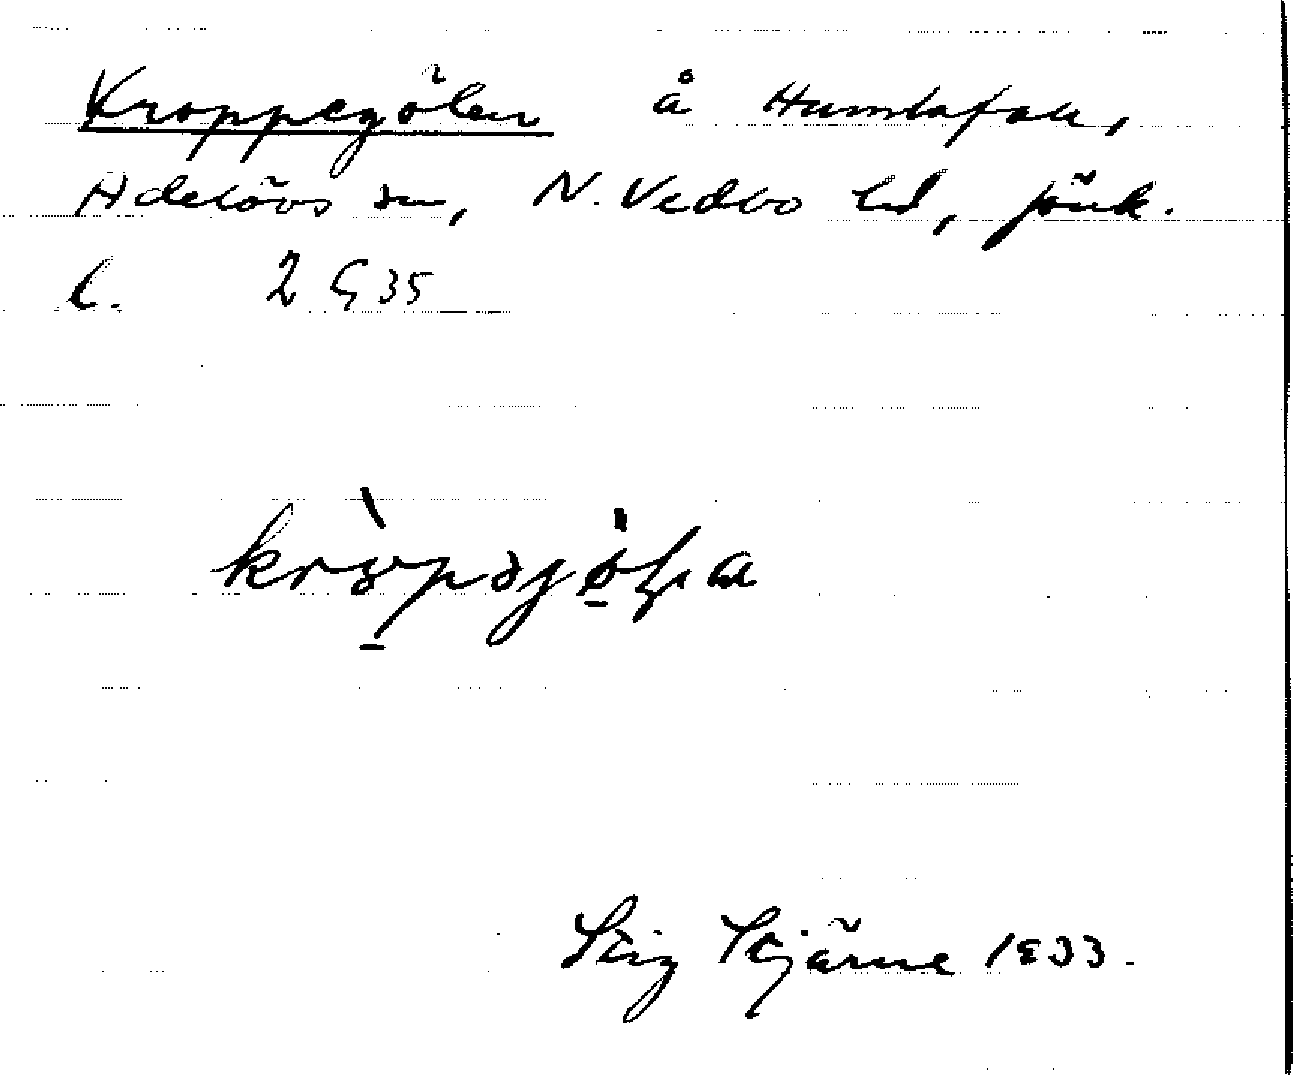 Kroppegölen å Humlafall,
Adelövs sn, N. Vedbo hd, Jönk.
l. 2 G 35
Stig Stjärne 1933.